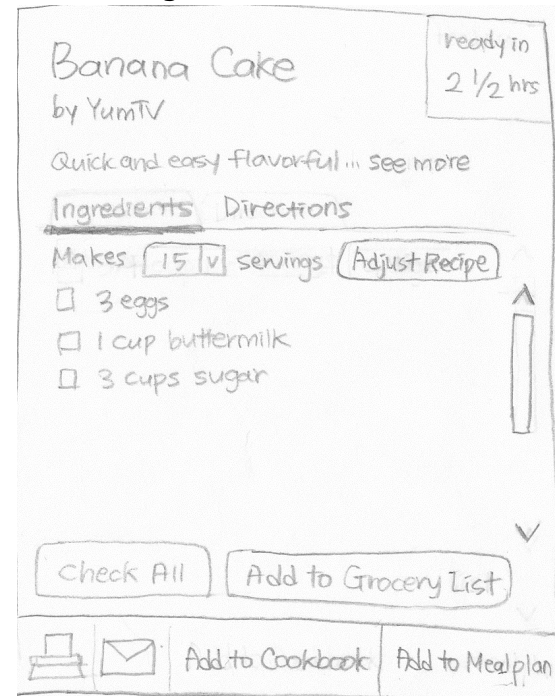 Banana Cake
ready in
2 1/2 hrs
by YumTV
Quick and easy flavorful... see more
Ingredients Directions
Makes 15 v servings Adjust Recipe
3 eggs
1 cup buttermilk
3 cups sugar
Check All Add to Grocery List
Add to Cookbook Add to Mealplan